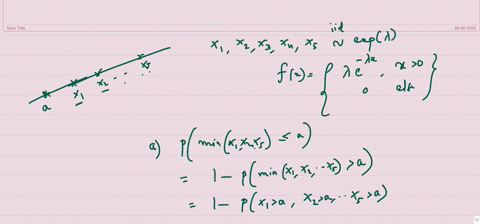 Note Title
26-02-2022
x₁, x₂, x₃, x₄, x₅ iid ~ exp(λ)
f(x) = { λ e^{-λx}, x>0
0 else }
a x₁ x₂ . . . x₅
a) P(min(x₁,x₂,x₅) ≤ a)
= 1 - P(min(x₁, x₂, ... x₅) > a)
= 1 - P(x₁>a, x₂>a, ... x₅>a)